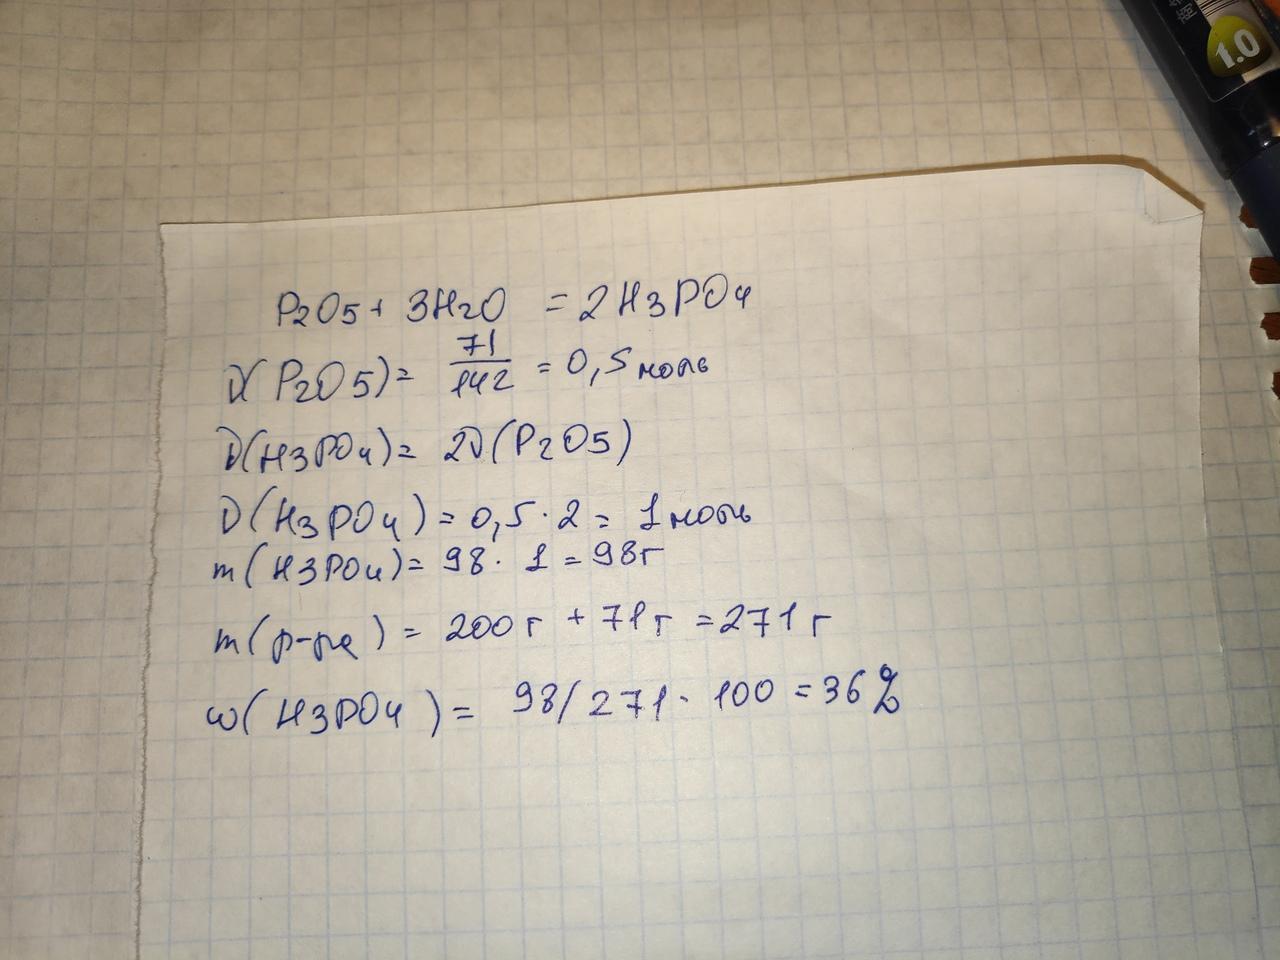 1.0
P2O5 + 3H2O = 2H3PO4
ν(P2O5) = 71/142 = 0,5 моль
ν(H3PO4) = 2ν(P2O5)
ν(H3PO4) = 0,5 · 2 = 1 моль
m(H3PO4) = 98 · 1 = 98г
m(р-ра) = 200г + 71г = 271г
ω(H3PO4) = 98/271 · 100 = 36%